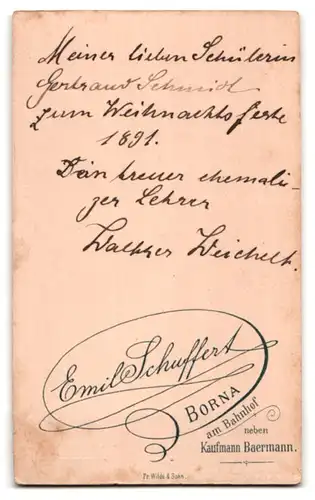 Meiner lieben Schülerin
Gertraud Schmidt
zum Weihnachtsfeste
1891.
Dein treuer ehemali-
ger Lehrer
Walther Weichelt.
Emil Schuffert
BORNA
am Bahnhof
neben
Kaufmann Baermann.
Fr. Wilde & Sohn